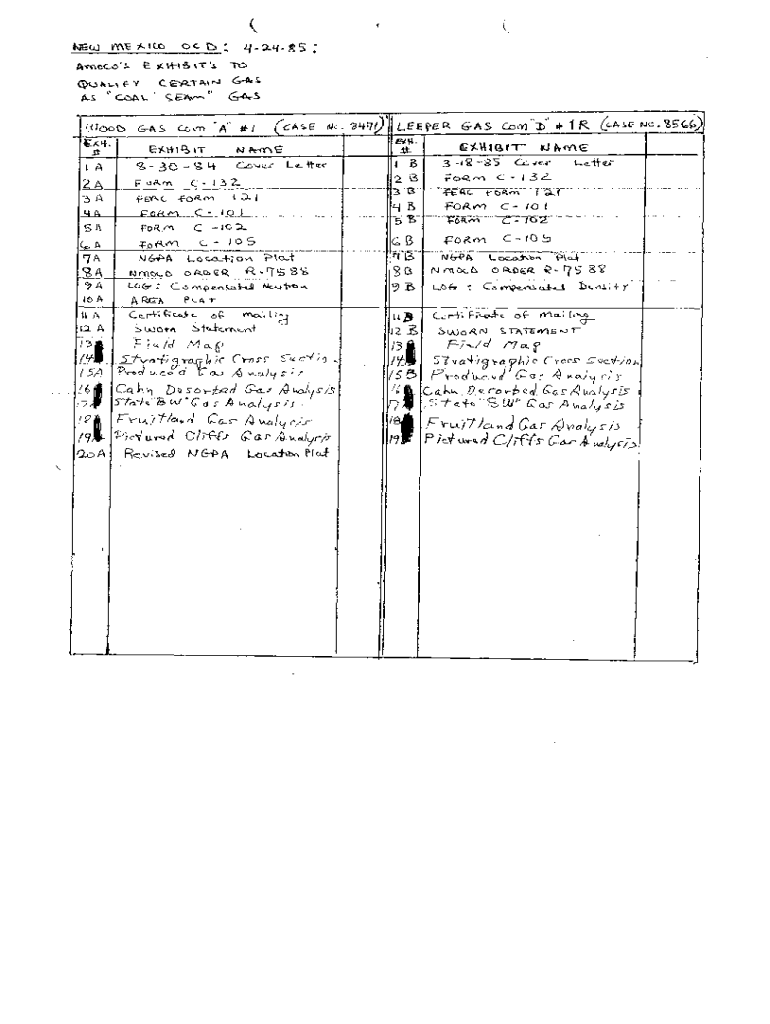 NEW MEXICO OCD: 4-24-85:
AMOCO'S EXHIBIT'S TO
QUALIFY CERTAIN GAS
AS "COAL SEAM" GAS
WOOD GAS COM "A" #1 (CASE No. 8471) LEEPER GAS COM "D" #1R (CASE NO. 8566)
EXH. # EXHIBIT NAME EXH. # EXHIBIT NAME
1 A 8-30-84 Cover Letter 1 B 3-18-85 Cover Letter
2 A FORM C-132 2 B FORM C-132
3 A FERC FORM 121 3 B FERC FORM 121
4 A FORM C-101 4 B FORM C-101
5 A FORM C-102 5 B FORM C-102
6 A FORM C-105 6 B FORM C-105
7A NGPA Location Plat 7 B NGPA Location Plat
8A NMOCD ORDER R-7588 8 B NMOCD ORDER R-7588
9 A LOG: Compensated Neutron 9 B LOG: Compensated Density
10 A AREA PLAT
11 A Certificate of mailing 11 B Certificate of Mailing
12 A Sworn Statement 12 B SWORN STATEMENT
13 Field Map 13 Field Map
14 Stratigraphic Cross Sectio. 14 Stratigraphic Cross Section
15A Produced Gas Analysis 15 B Produced Gas Analysis
16 Cahn Desorbed Gas Analysis 16 Cahn Desorbed Gas Analysis
17 State "BW" Gas Analysis. 17 State "BW" Gas Analysis
18 Fruitland Gas Analysis 18 Fruitland Gas Analysis
19 Pictured Cliffs Gas Analysis 19 Pictured Cliffs Gas Analysis
20A Revised NGPA Location Plat